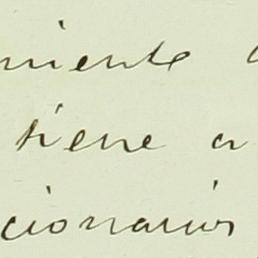 miente
tiene a
cionarios